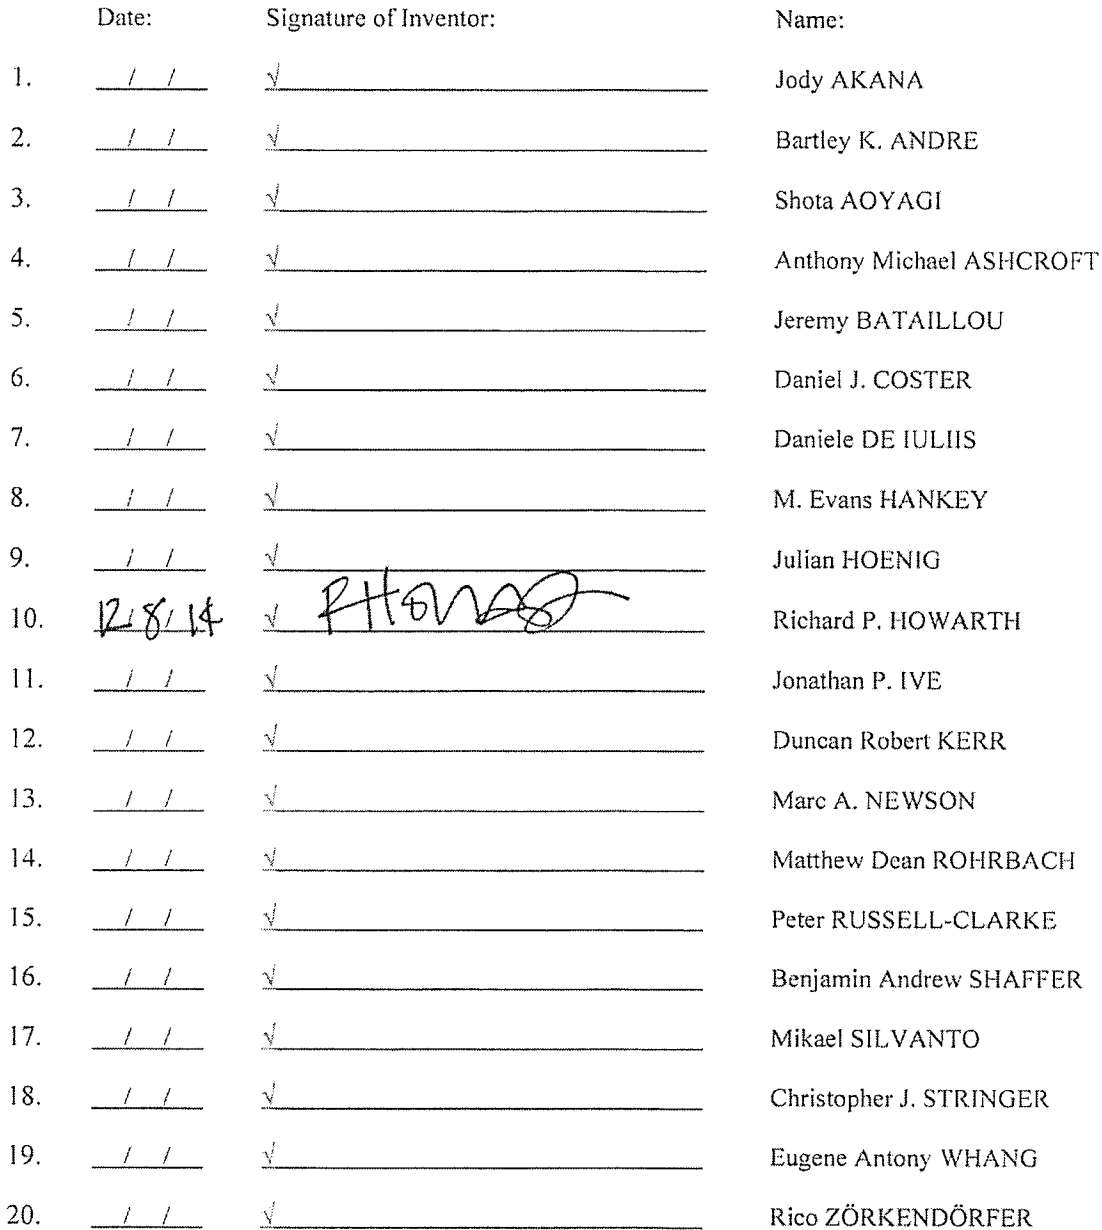 Date: Signature of Inventor: Name:
1. / / √ Jody AKANA
2. / / √ Bartley K. ANDRE
3. / / √ Shota AOYAGI
4. / / √ Anthony Michael ASHCROFT
5. / / √ Jeremy BATAILLOU
6. / / √ Daniel J. COSTER
7. / / √ Daniele DE IULIIS
8. / / √ M. Evans HANKEY
9. / / √ Julian HOENIG
10. 12/8/14 √ Richard P. HOWARTH
11. / / √ Jonathan P. IVE
12. / / √ Duncan Robert KERR
13. / / √ Marc A. NEWSON
14. / / √ Matthew Dean ROHRBACH
15. / / √ Peter RUSSELL-CLARKE
16. / / √ Benjamin Andrew SHAFFER
17. / / √ Mikael SILVANTO
18. / / √ Christopher J. STRINGER
19. / / √ Eugene Antony WHANG
20. / / √ Rico ZÖRKENDÖRFER